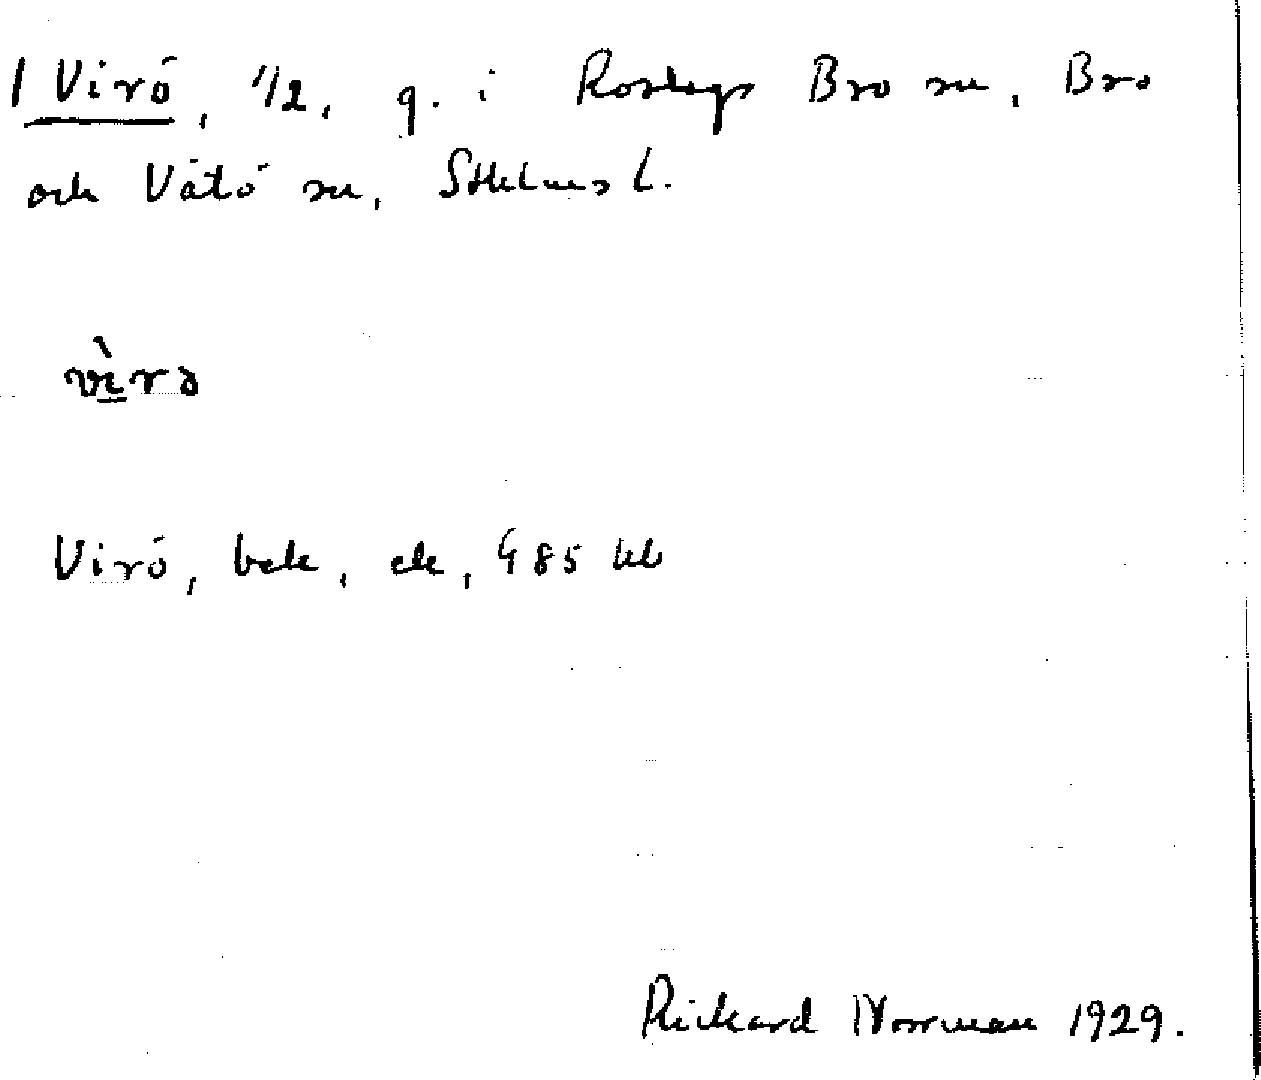 1 Virö, 1/2, g. i Roslags Bro sn, Bro
och Vätö sn, Sthlms l.
vìrə
Virö, bek. ek, G 85 bl
Rickard Norrman 1929.